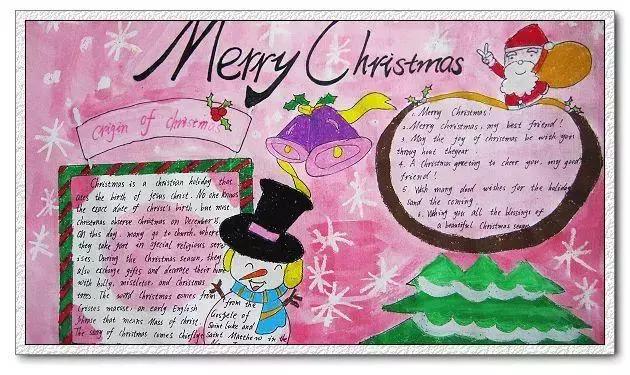 Merry Christmas
Origin of Christmas
Christmas is a christian holiday that
the birth of Jesus christ. No one knows
the exact date of christ's birth, but most
christmas observe Christmas on December 25.
On this day. many go to church, where
they take part in special religious serv
ises. During the Christmas season, they
also exchange gifts and decorate their hom
with holly, mistletoe, and Christmas
trees. The word Christmas comes from
cristes maesse, an early English
phrase that means Mass of christ
The story of Christmas comes chiefly
from the
Gospels of
Saint Luke and
Saint Matthew in the
1. Merry Christmas!
2. Merry christmas, my best friend!
3. May the joy of christmas be with you
throug hout theyear
4. A Christmas greeting to cheer you. my good
friend!
5. With many good wishes for the holiday
and the coming
6. Wishing you all the blessings of
a beautiful Christmas season